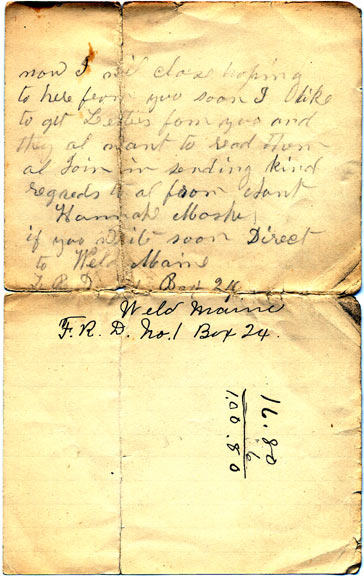 now I wil close hoping
to here from you soon I like
to get Letters fom you and
they al want to read them
al Join in sending kind
regreds to al from Aunt
Hannah Mosher
if you write soon Direct
to Weld Maine
F R D Box 24
Weld Maine
F. R. D. No. 1 Box 24.
16.80
6
1.00.80